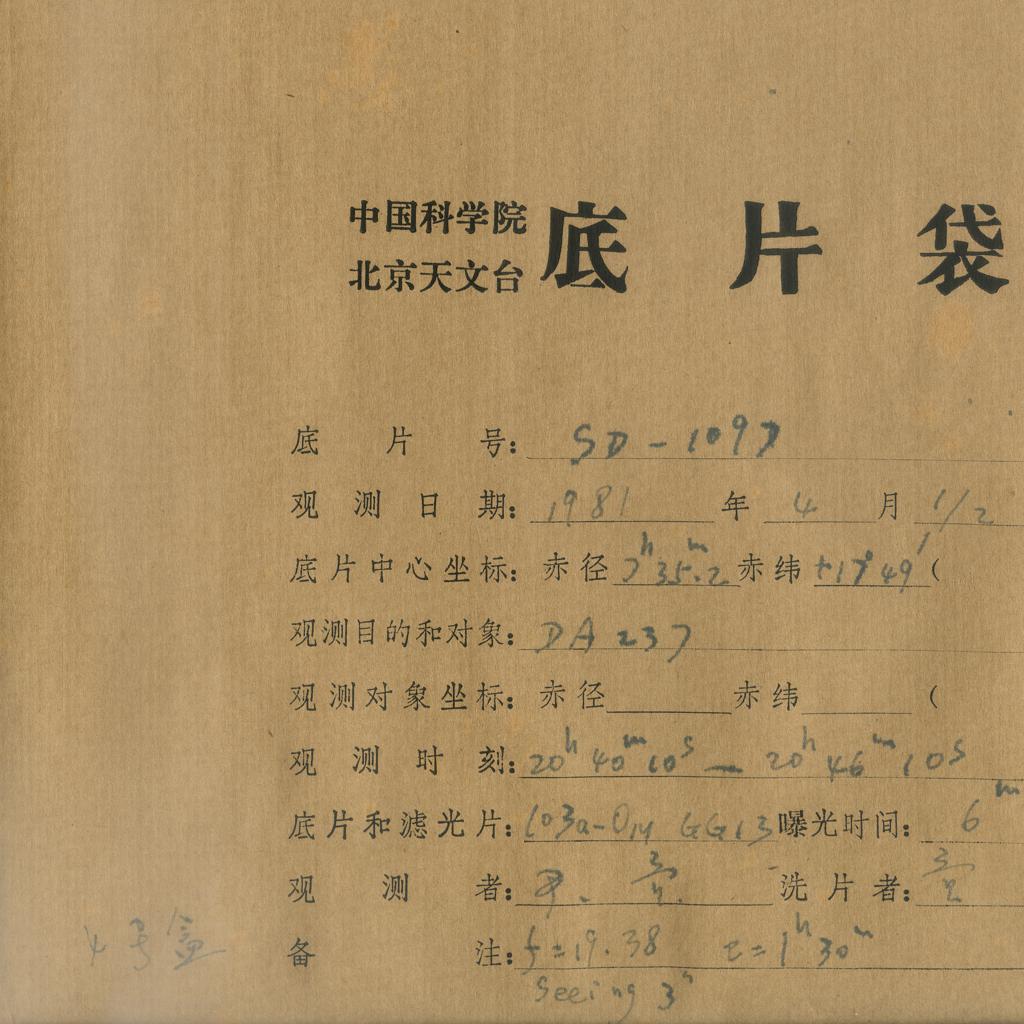 中国科学院
北京天文台
底片袋
底片号: SD-1097
观测日期: 1981年4月1/2
底片中心坐标: 赤径 7ʰ35ᵐ.2 赤纬 +17°49′ (
观测目的和对象: DA 237
观测对象坐标: 赤径 赤纬 (
观测时刻: 20ʰ40ᵐ10ˢ — 20ʰ46ᵐ10ˢ
底片和滤光片: 103a-O GG13 曝光时间: 6ᵐ
观测者: 洗片者:
备注: f=19.38 t=1ʰ30ᵐ
seeing 3"
4号盒